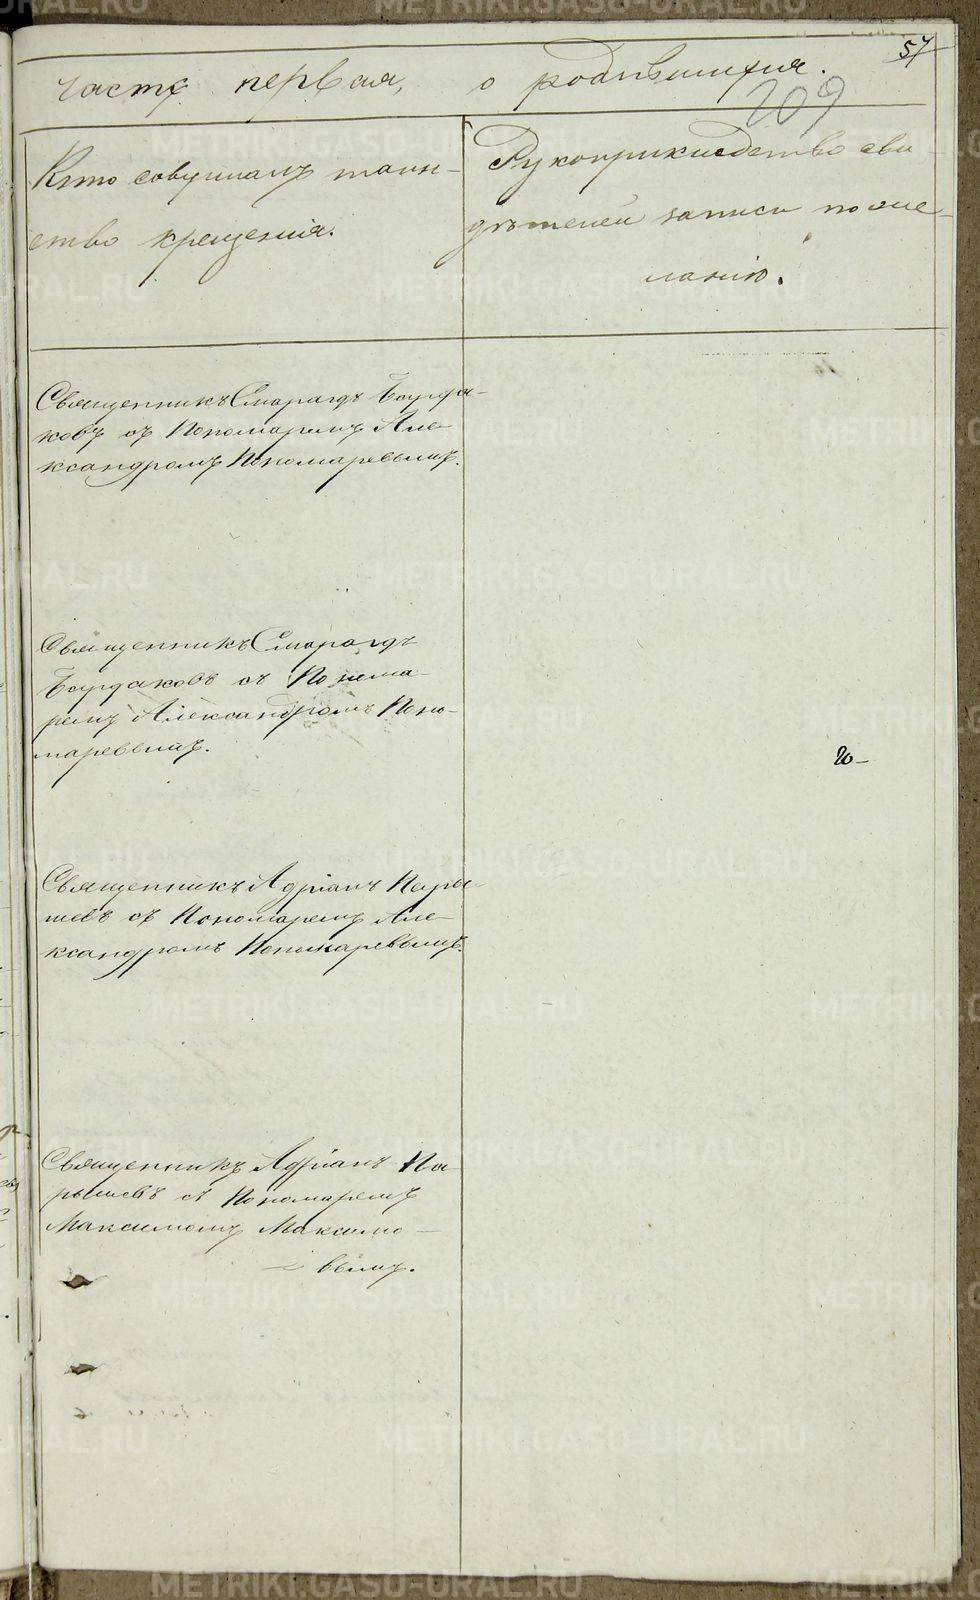 57
часть первая, о родившихся.
209
Кто совершалъ таин-
ство крещенія.
Рукоприкладство сви-
дѣтелей записи по же-
ланію.
Священникъ Смарагдъ Бурда-
ковъ съ Пономаремъ Але-
ксандромъ Пономаревымъ.
Священникъ Смарагдъ
Бурдаковъ съ Понома-
ремъ Александромъ Поно-
маревымъ.
Священникъ Адріанъ Пары-
шевъ съ Пономаремъ Але-
ксандромъ Пономаревымъ.
Священникъ Адріанъ Па-
рышевъ съ Пономаремъ
Максимомъ Максимо-
вымъ.
METRIKI.GASO-URAL.RU